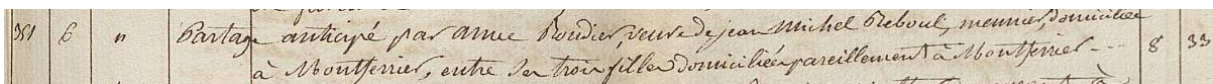 351 6 " Partage anticipé par anne Boudier, veuve de jean Michel Reboul, meunier, domiciliée 8 33
à Montferrier, entre ses trois filles domiciliées pareillement à Montferrier ---